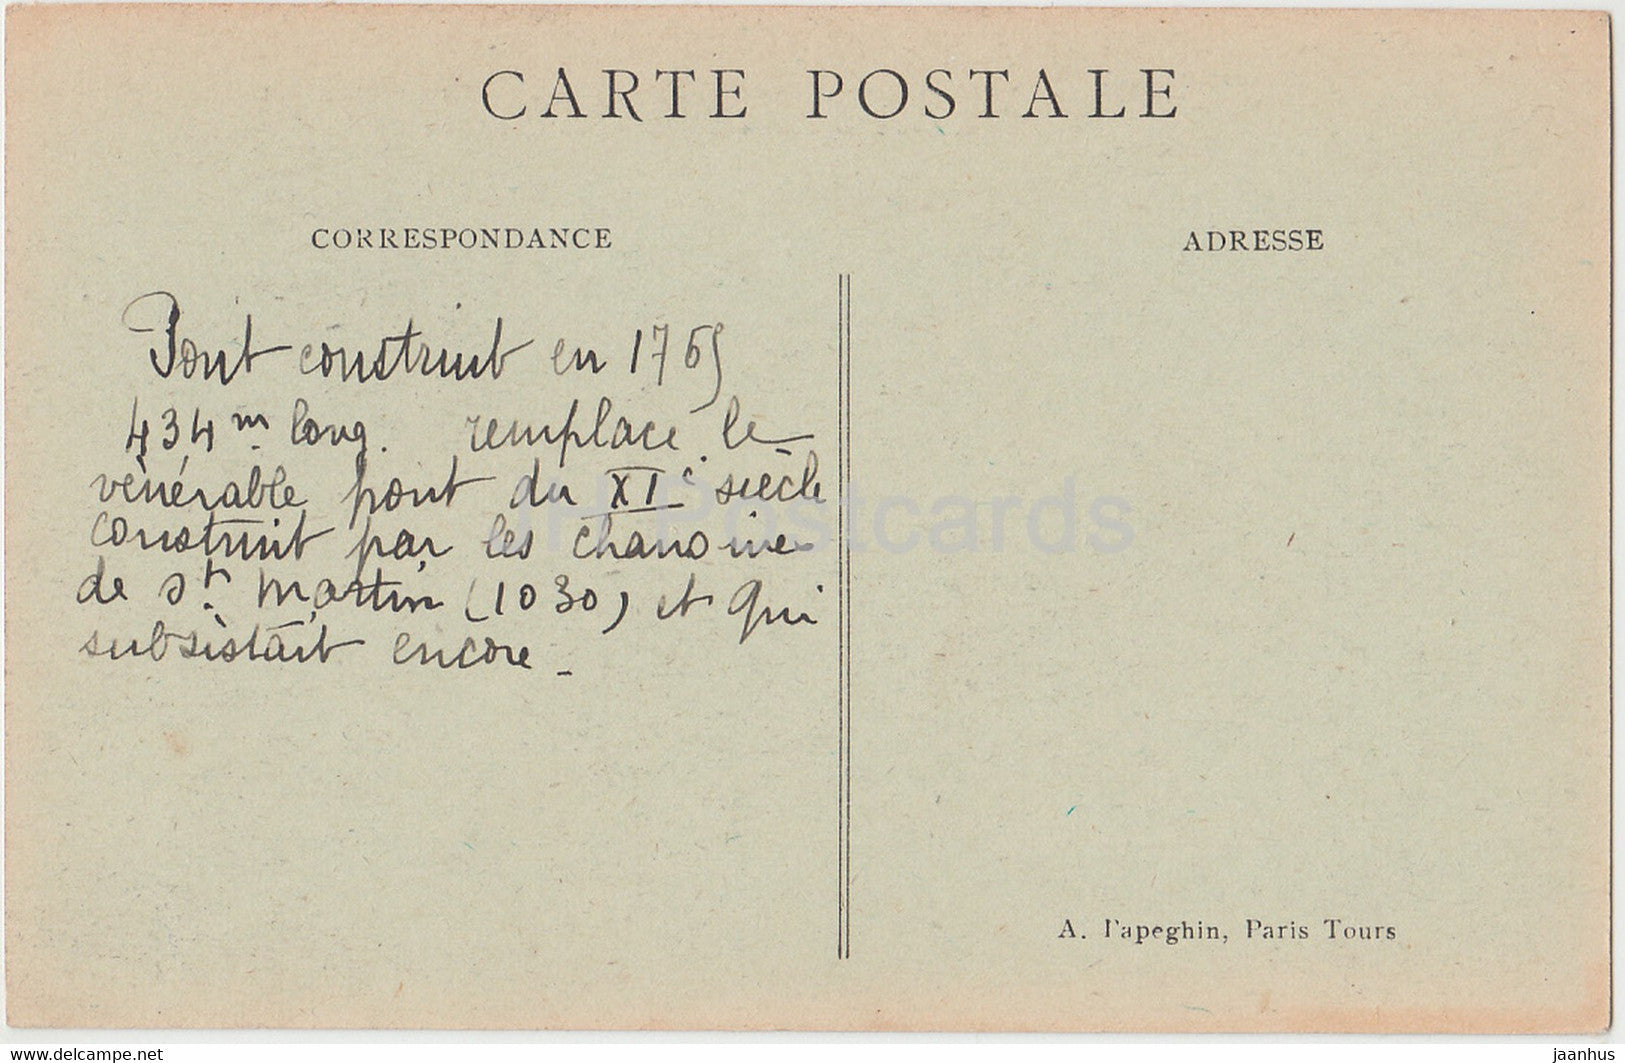 CARTE POSTALE
CORRESPONDANCE
ADRESSE
Pont construit en 1765
434 m. long. remplace le
vénérable pont du XIe siècle
construit par les chanoines
de St. Martin (1030) et qui
subsistait encore -
A. Papeghin, Paris Tours
TH Postcards
www.delcampe.net
jaanhus